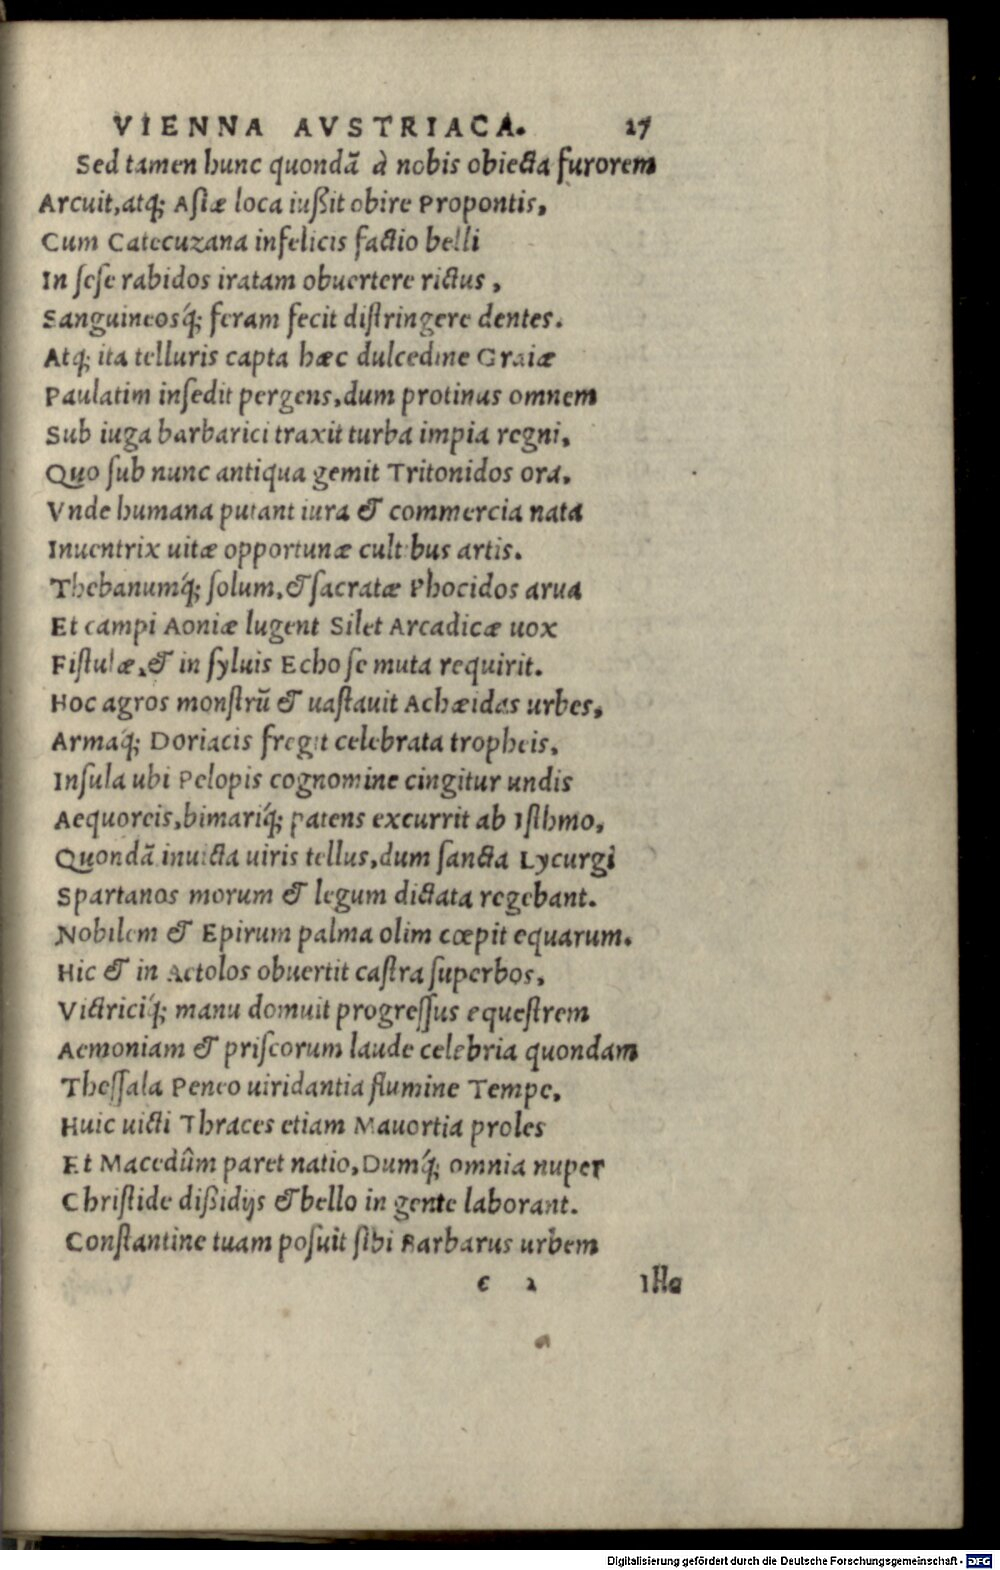 VIENNA AVSTRIACA. 27
Sed tamen hunc quondã à nobis obiecta furorem
Arcuit, atq; Asiæ loca iußit obire Propontis,
Cum Catecuzana infelicis factio belli
In sese rabidos iratam obuertere rictus,
Sanguineosq́; feram fecit distringere dentes.
Atq; ita telluris capta hæc dulcedine Graiæ
Paulatim insedit pergens, dum protinus omnem
Sub iuga barbarici traxit turba impia regni,
Quo sub nunc antiqua gemit Tritonidos ora.
Vnde humana putant iura & commercia nata
Inuentrix uitæ opportunæ cultibus artis.
Thebanumq́; solum, & sacratæ Phocidos arua
Et campi Aoniæ lugent Silet Arcadicæ uox
Fistulæ, & in syluis Echo se muta requirit.
Hoc agros monstrũ & uastauit Achæidas urbes,
Armaq́; Doriacis fregit celebrata tropheis,
Insula ubi Pelopis cognomine cingitur undis
Aequoreis, bimariq́; patens excurrit ab Isthmo,
Quondã inuicta uiris tellus, dum sancta Lycurgi
Spartanos morum & legum dictata regebant.
Nobilem & Epirum palma olim cœpit equarum.
Hic & in Aetolos obuertit castra superbos,
Victriciq́; manu domuit progressus equestrem
Aemoniam & priscorum laude celebria quondam
Thessala Peneo uiridantia flumine Tempe,
Huic uicti Thraces etiam Mauortia proles
Et Macedûm paret natio, Dumq́; omnia nuper
Christide dißidijs & bello in gente laborant.
Constantine tuam posuit sibi Barbarus urbem
c 2 Ille
Digitalisierung gefördert durch die Deutsche Forschungsgemeinschaft - DFG